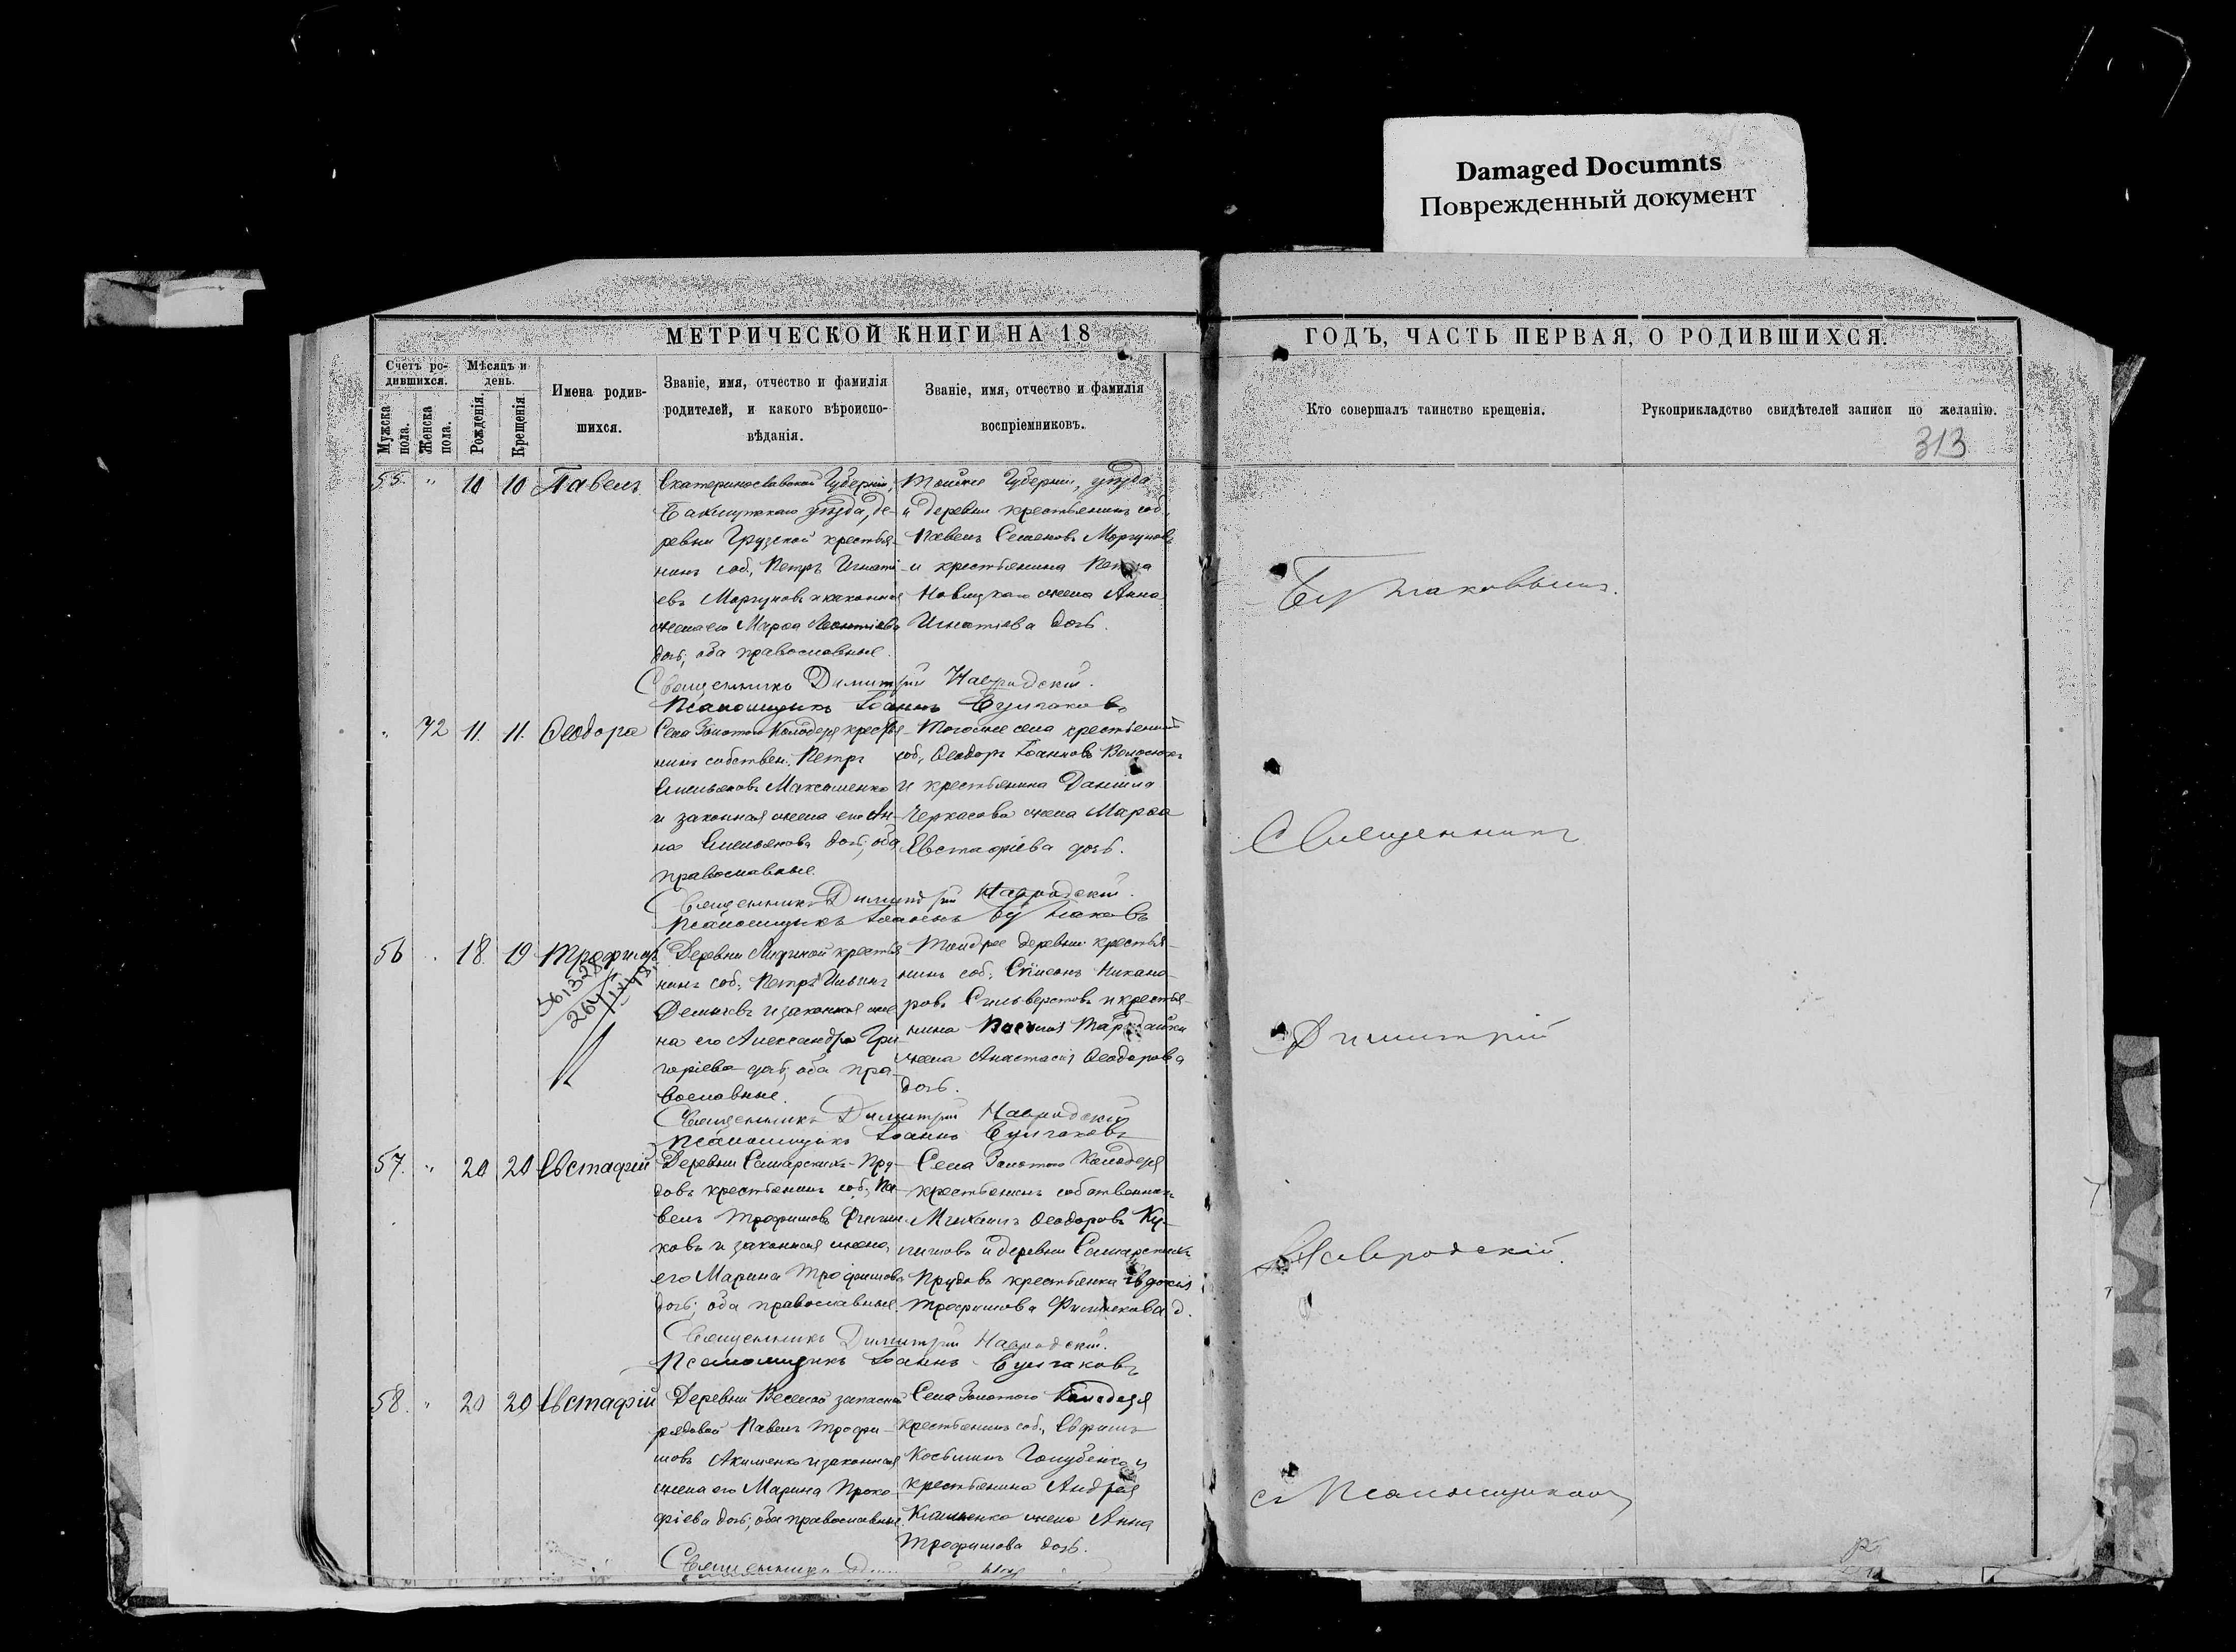 Damaged Documnts
Поврежденный документ
МЕТРИЧЕСКОЙ КНИГИ НА 18
ГОДЪ, ЧАСТЬ ПЕРВАЯ, О РОДИВШИХСЯ.
Счетъ ро-
дившихся.
Мужска
пола.
Женска
пола.
Мѣсяцъ и
день.
Рожденія.
Крещенія.
Имена родив-
шихся.
Званіе, имя, отчество и фамилія
родителей, и какого вѣроиспо-
вѣданія.
Званіе, имя, отчество и фамилія
воспріемниковъ.
Кто совершалъ таинство крещенія.
Рукоприкладство свидѣтелей записи по желанію.
313
55. " 10 10 Павелъ
Екатеринославской Губерніи,
Бахмутскаго уѣзда, де-
ревни Грузской крестья-
нинъ соб., Петръ Игнаті-
евъ Моргуновъ и законная
жена его Марѳа Леонтіева
дочь; оба православные.
Тойже Губерніи, уѣзда
и деревни крестьянинъ соб.,
Павелъ Семеновъ Моргуновъ
и крестьянина Петра
Новицкаго жена Анна
Игнатіева дочь.
Священникъ Димитрій Навродскій.
Псаломщикъ Іоаннъ Булгаковъ
" 72 11. 11. Ѳеодора
Села Золотого Колодезя крестья-
нинъ собствен. Петръ
Емельяновъ Максименко
и законная жена его Ан-
на Емельянова дочь; оба
православные.
Тогоже села крестьянинъ
соб., Ѳеодоръ Іоанновъ Волосюкъ
и крестьянина Даніила
Черкасова жена Марѳа
Евстафіева дочь.
Священникъ Димитрій Навродскій.
Псаломщикъ Іоаннъ Булгаковъ
56 " 18. 19 Трофимъ
Деревни крестья-
нинъ соб., Петръ Ильинъ
и законная же-
на его Александра Гри-
горіева дочь; оба пра-
вославные.
Тойже деревни крестья-
нинъ соб., Сѵмеонъ Никано-
ровъ Сильверстовъ и крестья-
нина
жена Анастасія Ѳеодорова
дочь.
Священникъ Димитрій Навродскій
Псаломщикъ Іоаннъ Булгаковъ
57. " 20 20 Евстафій
Деревни Самарскихъ-Пру-
довъ крестьянинъ соб., Па-
велъ Трофимовъ
ковъ и законная жена
его Марина Трофимова
дочь; оба православные.
Села Золотого Колодезя
крестьянинъ собственникъ
Михаилъ Ѳеодоровъ Ку-
и деревни Самарскихъ
Прудовъ крестьянка Евдокія
Трофимова д.
Священникъ Димитрій Навродскій.
Псаломщикъ Іоаннъ Булгаковъ
58. " 20 20 Евстафій
Деревни Веселой запасной
рядовой Павелъ Трофи-
мовъ Акименко и законная
жена его Марина Проко-
фіева дочь; оба православные.
Села Золотого Колодезя
крестьянинъ соб., Евфимъ
Косьминъ Голубенко и
крестьянина Андрея
жена Анна
Трофимова дочь.
Священникъ
Булгаковымъ.
Священникъ
Димитрій
Навродскій.
съ Псаломщикомъ